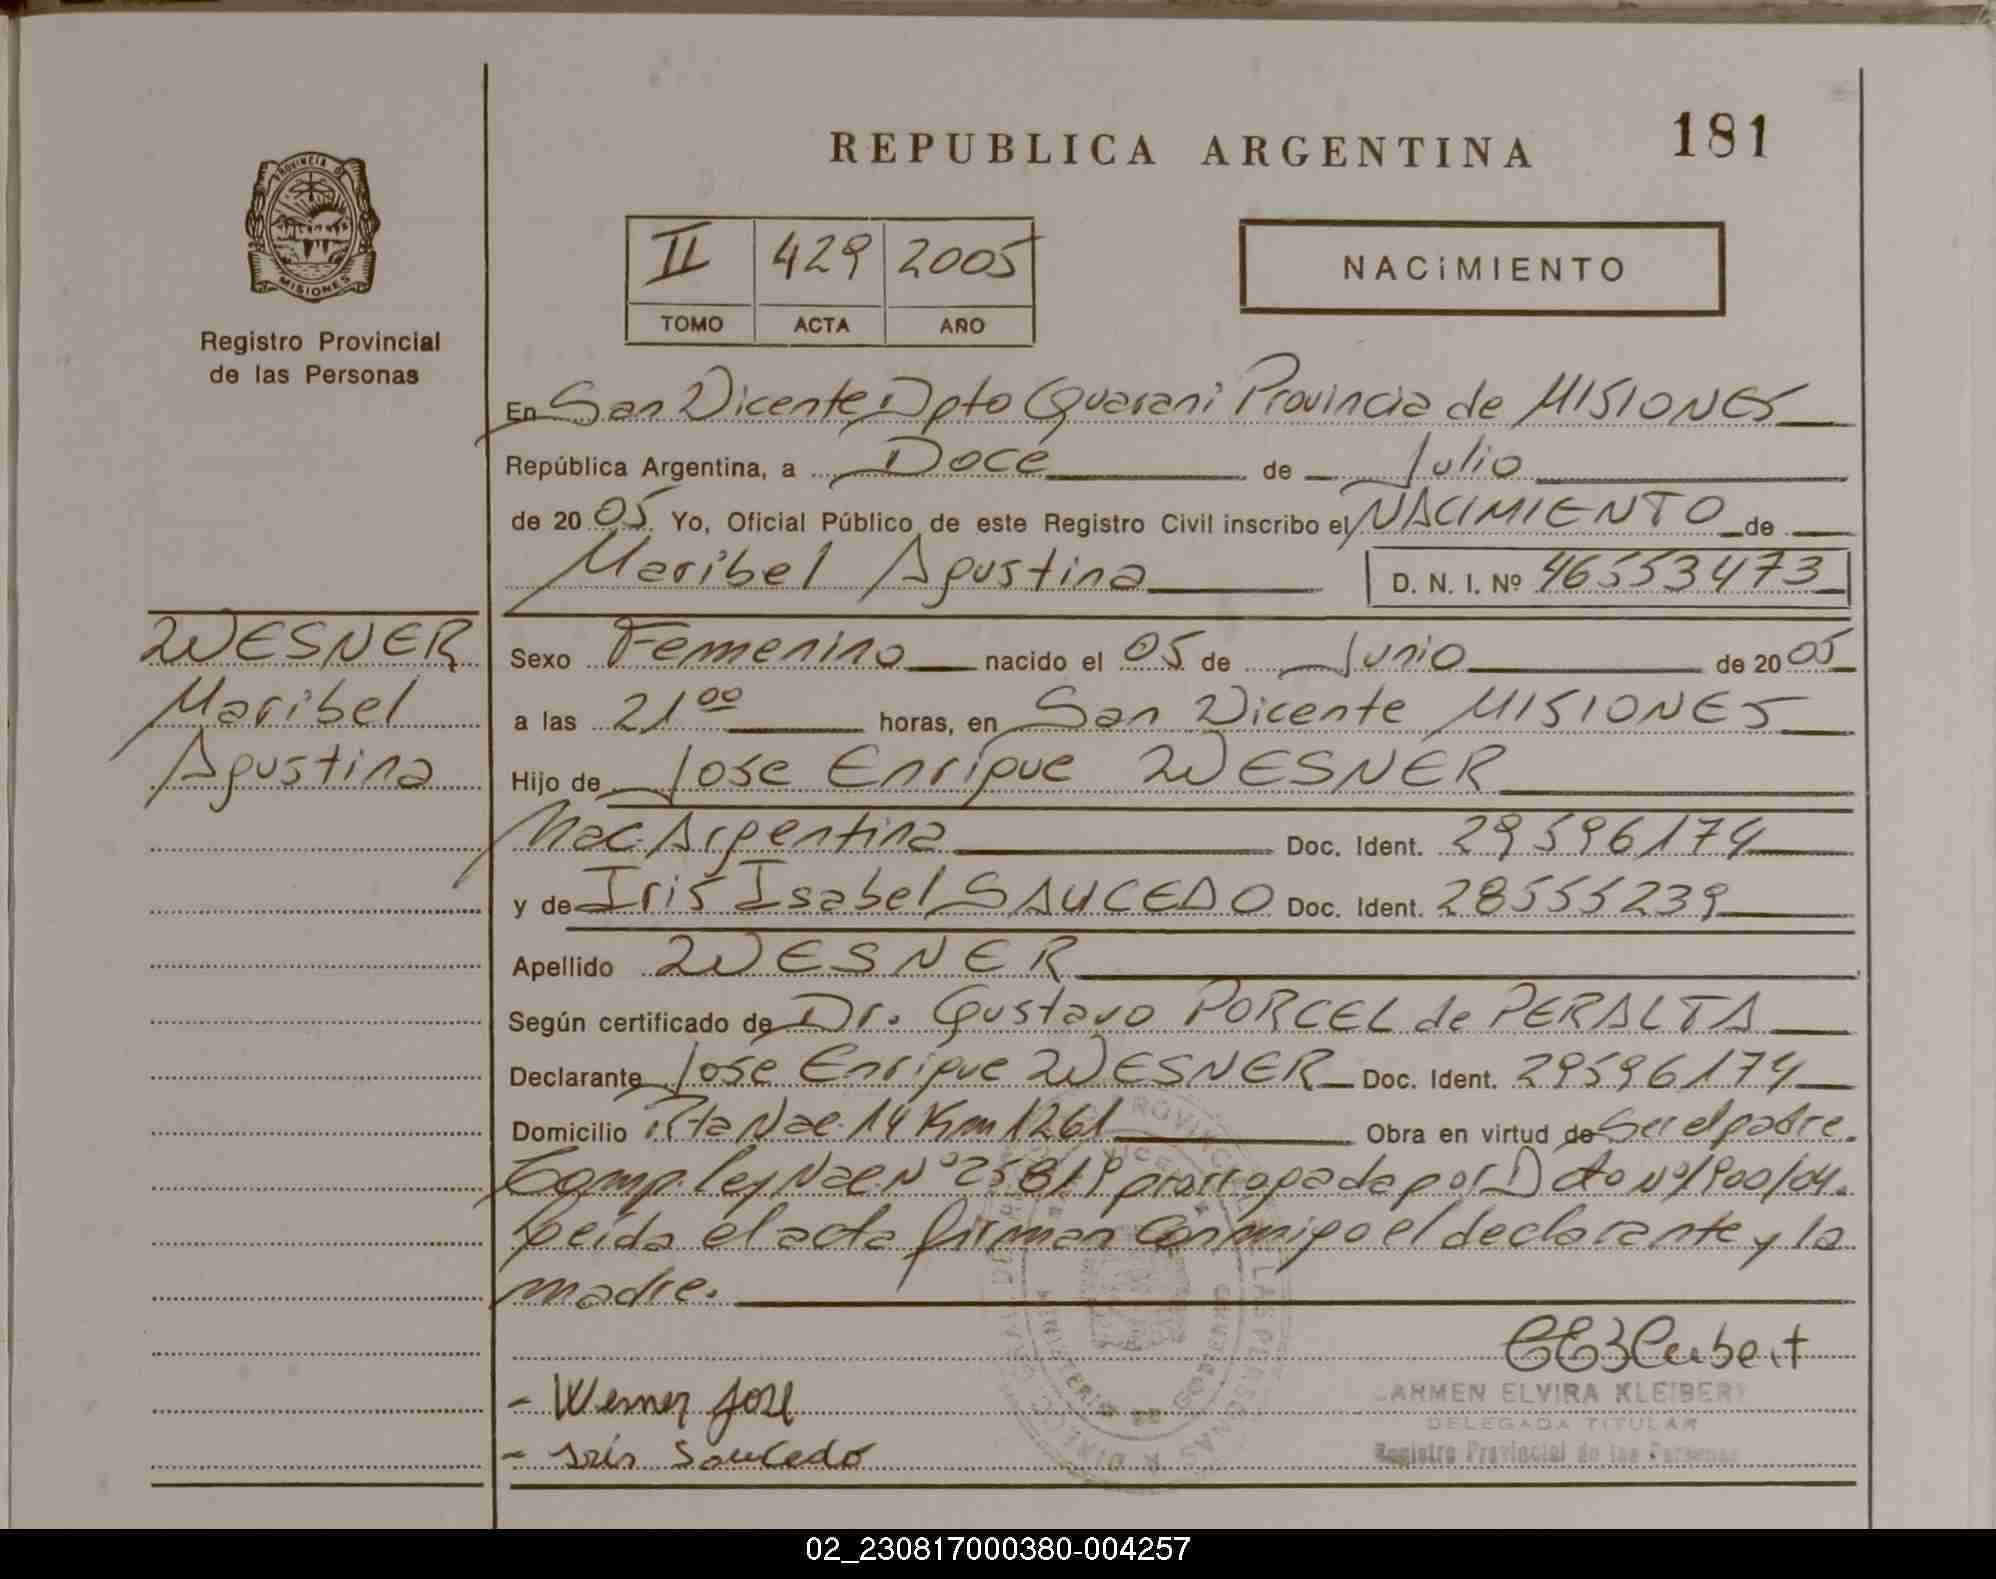 REPUBLICA ARGENTINA
181
PROVINCIA DE
MISIONES
Registro Provincial
de las Personas
II 429 2005
TOMO ACTA AÑO
NACiMIENTO
En San Vicente Dpto Guarani Provincia de MISIONES
República Argentina, a Doce de Julio
de 20 05 Yo, Oficial Público de este Registro Civil inscribo el NACIMIENTO de
Maribel Agustina D. N. I. Nº 46553473
WESNER
Maribel
Agustina
Sexo Femenino nacido el 05 de Junio de 20 05
a las 21 00 horas, en San Vicente MISIONES
Hijo de Jose Enrique WESNER
Nac. Argentina Doc. Ident. 29596174
y de Iris Isabel SAUCEDO Doc. Ident. 28555239
Apellido WESNER
Según certificado de Dr. Gustavo PORCEL de PERALTA
Declarante José Enrique WESNER Doc. Ident. 29596174
Domicilio Rta Nac. 14 Km 1261 Obra en virtud de Ser el padre.
Comp. ley Nac. Nº 25819 prorrogada por Dcto Nº 1900/04.
Leida el acta firman Conmigo el declarante y la
madre.
- Wesner José
- Iris Saucedo
CARMEN ELVIRA KLEIBERT
DELEGADA TITULAR
Registro Provincial de las Personas
02_230817000380-004257